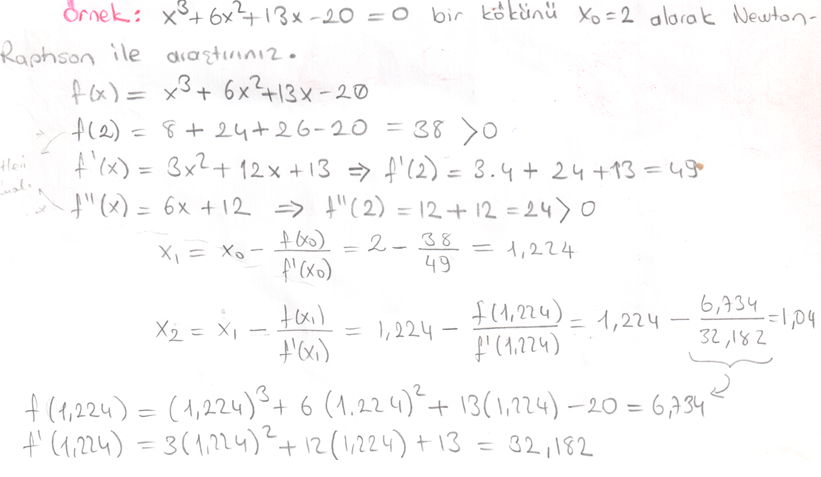 Örnek: x³+6x²+13x-20=0 bir kökünü x₀=2 alarak Newton-
Raphson ile araştırınız.
f(x) = x³+6x²+13x-20
f(2) = 8+24+26-20 = 38 >0
f'(x) = 3x²+12x+13 ⇒ f'(2) = 3.4+24+13=49
f''(x) = 6x+12 ⇒ f''(2) = 12+12=24>0
x₁ = x₀ - f(x₀)/f'(x₀) = 2 - 38/49 = 1,224
x₂ = x₁ - f(x₁)/f'(x₁) = 1,224 - f(1,224)/f'(1,224) = 1,224 - 6,734/32,182 =1,04
f(1,224) = (1,224)³+6(1.224)²+13(1,224)-20=6,734
f'(1,224) = 3(1,224)²+12(1,224)+13 = 32,182